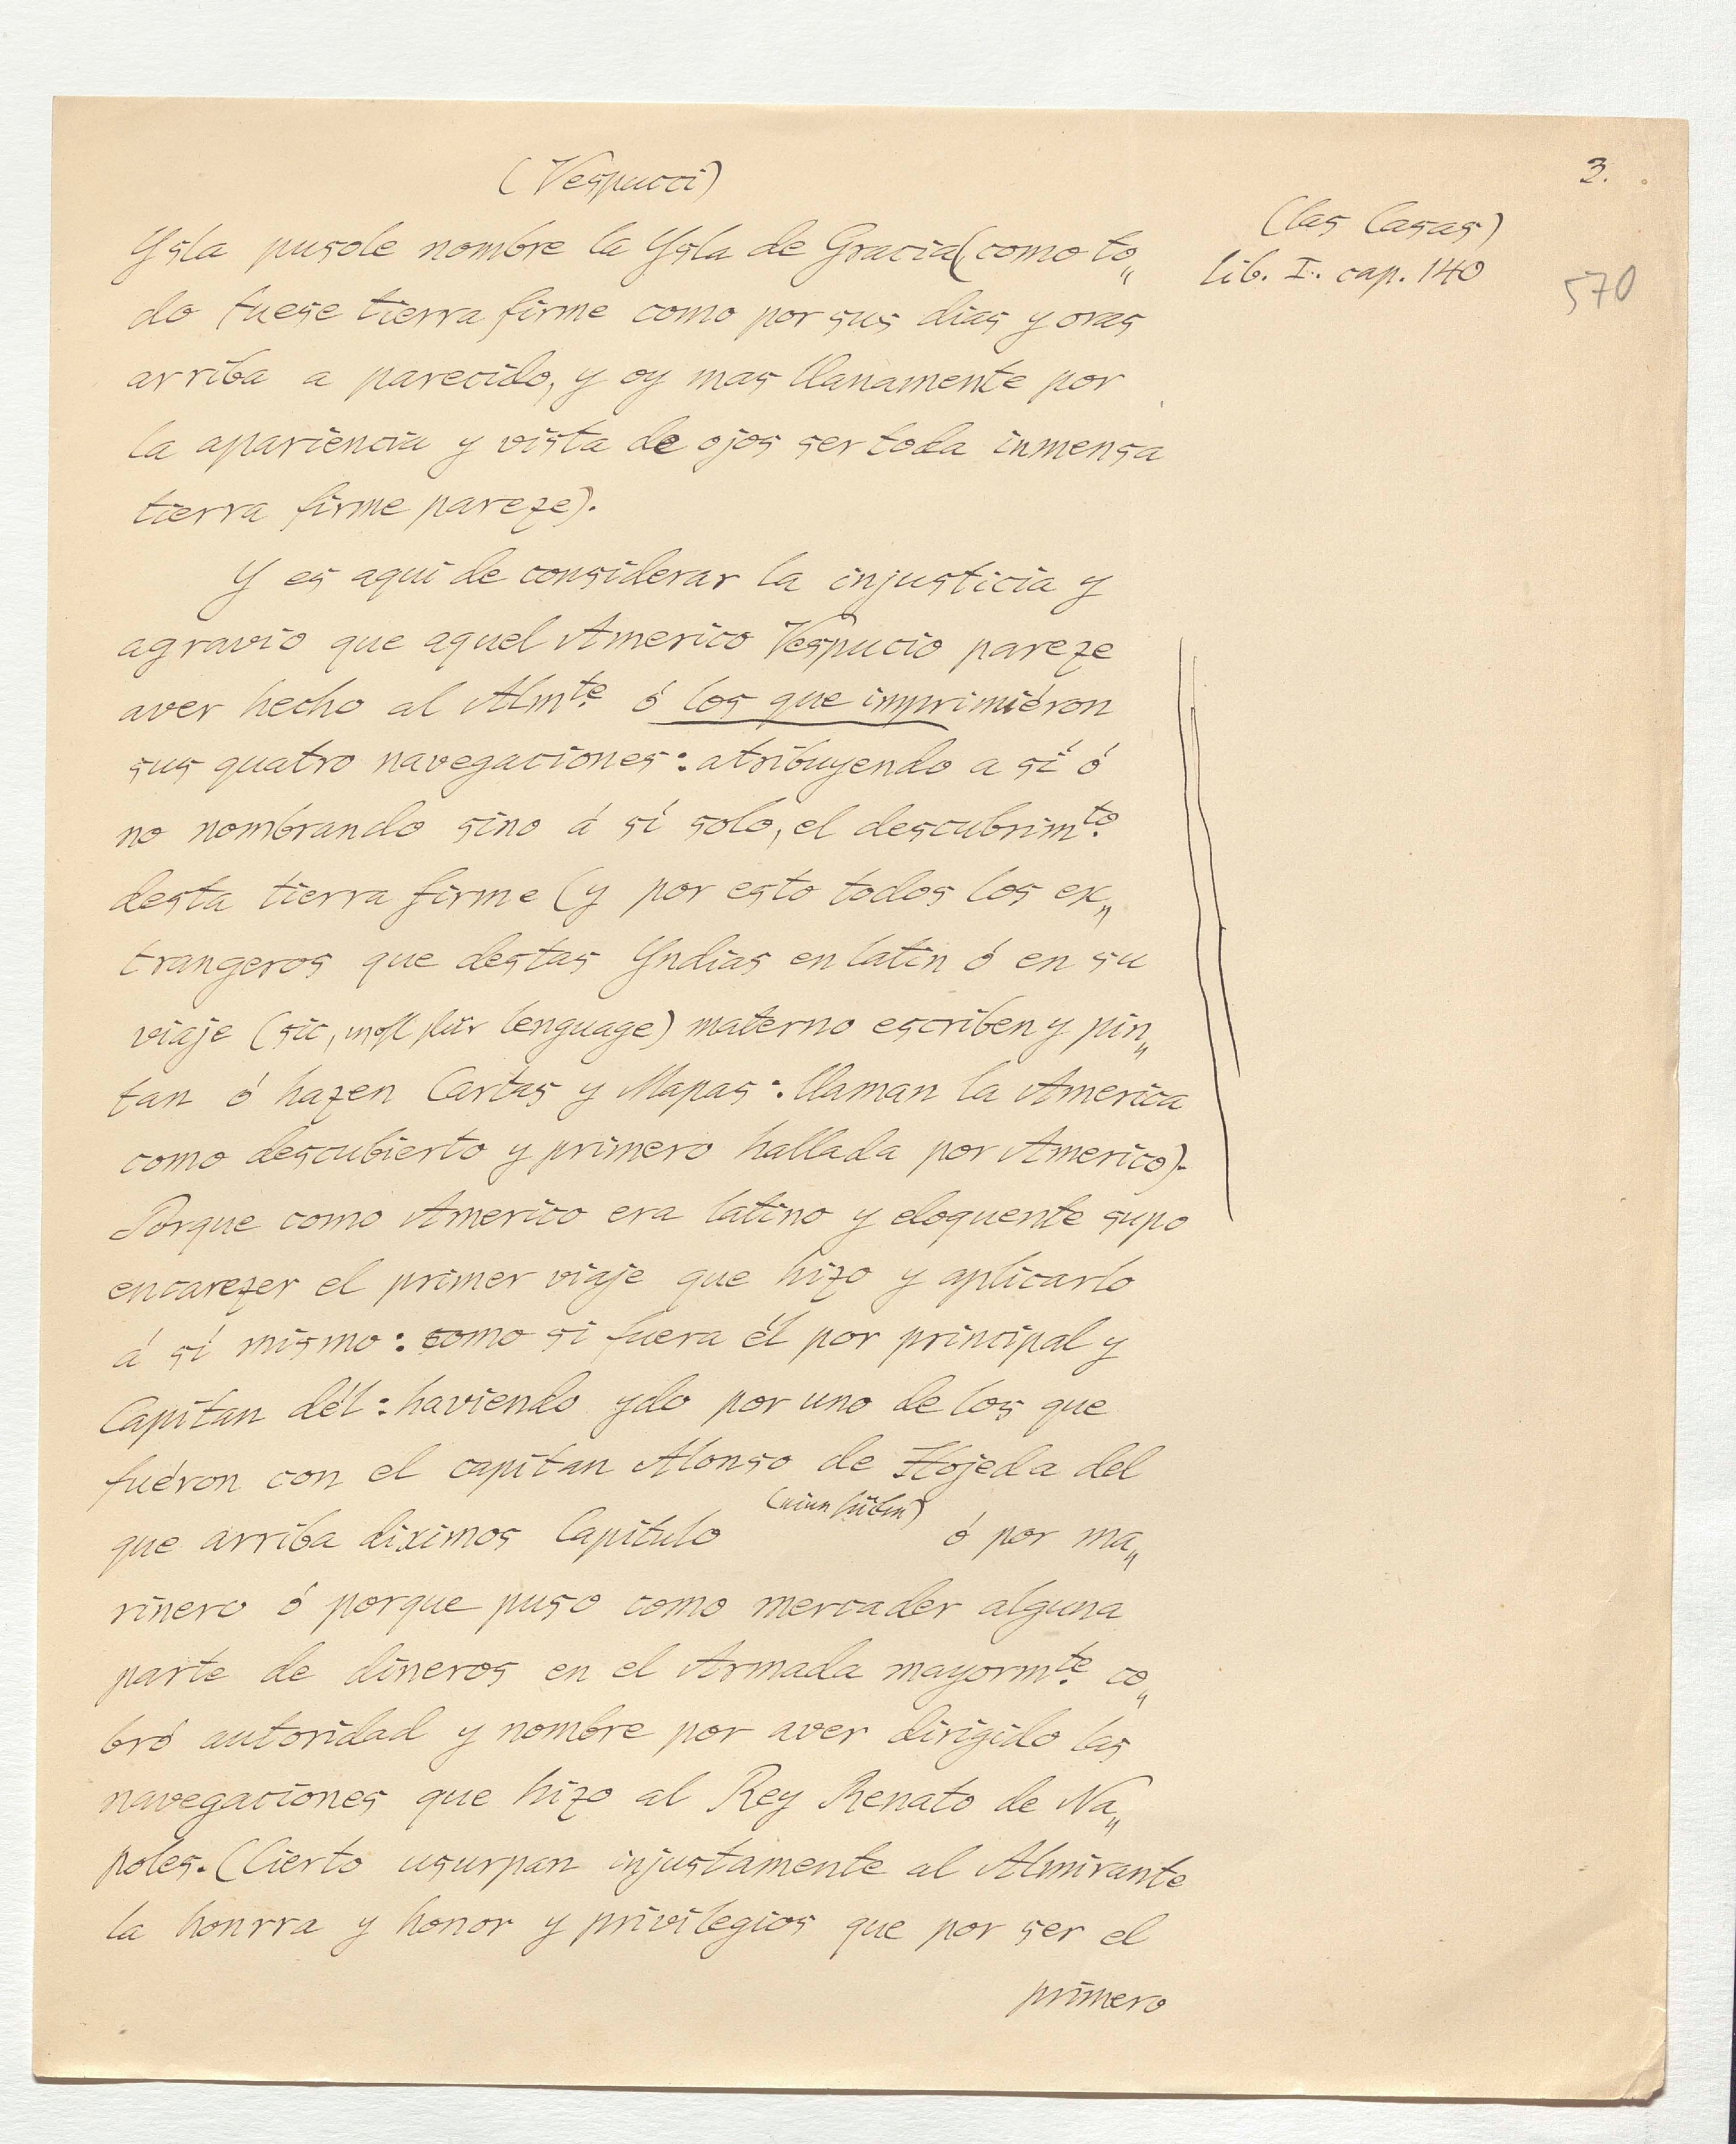 (Vespucci)
3.
(las Casas)
lib. I. cap. 140
570
Ysla pusole nombre la Ysla de Gracia (como to„
do fuese tierra firme como por sus dias y oras
arriba a parecido, y oy mas llanamente por
la apariencia y vista de ojos ser toda inmensa
tierra firme pareze).
Y es aqui de considerar la injusticia y
agravio que aquel Americo Vespucio pareze
aver hecho al Almte. ó los que imprimiéron
sus quatro navegaciones: atribuyendo a sí ó
no nombrando sino á sí solo, el descubrimto.
desta tierra firme (y por esto todos los ex„
trangeros que destas Yndias en latin ó en su
viaje (sic, wohl für lenguage) materno escriben y pin„
tan ó hazen Cartas y Mapas: llaman la America
como descubierto y primero hallada por Americo).
Porque como Americo era latino y eloquente supo
encarezer el primer viaje que hizo y aplicarlo
á sí mismo: como si fuera él por principal y
Capitan dél: haviendo ydo por uno de los que
fuéron con el capitan Alonso de Hojeda del
que arriba diximos Capitulo ó por ma„
rinero ó porque puso como mercader alguna
parte de dineros en el Armada mayormte. co„
bró autoridad y nombre por aver dirigido las
navegaciones que hizo al Rey Renato de Na„
poles. (Cierto usurpan injustamente al Almirante
la honrra y honor y privilegios que por ser el
primero